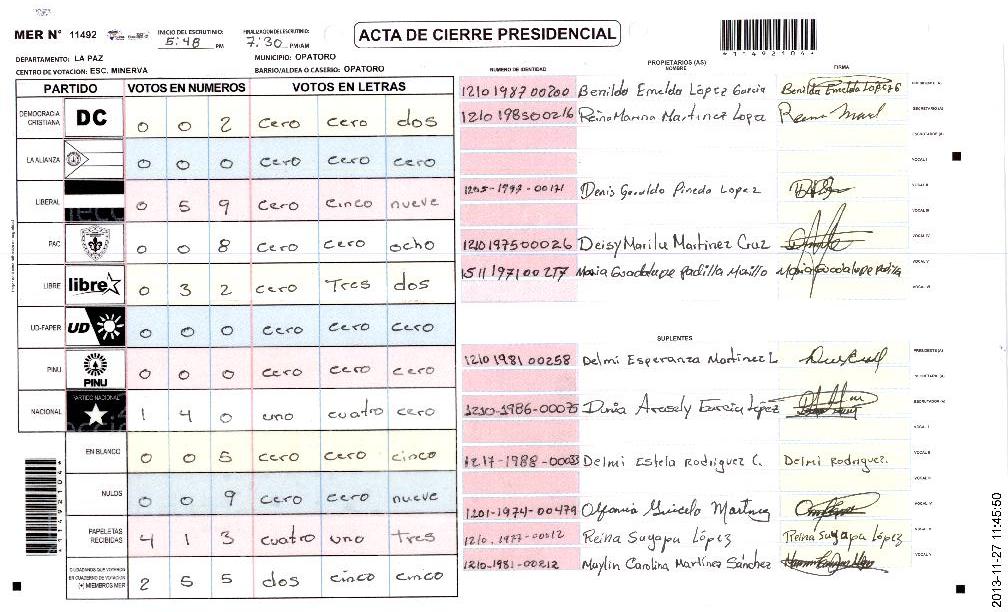 MER N° 11492
INICIO DEL ESCRUTINIO: 5:48 PM
FINALIZACION DEL ESCRUTINIO: 7:30 PM/AM
ACTA DE CIERRE PRESIDENCIAL
114921041
DEPARTAMENTO: LA PAZ
MUNICIPIO: OPATORO
CENTRO DE VOTACION: ESC. MINERVA
BARRIO/ALDEA O CASERIO: OPATORO
PARTIDO VOTOS EN NUMEROS VOTOS EN LETRAS
DEMOCRACIA CRISTIANA DC 0 0 2 cero cero dos
LA ALIANZA 0 0 0 cero cero cero
LIBERAL 0 5 9 cero cinco nueve
PAC 0 0 8 cero cero ocho
LIBRE libre 0 3 2 cero Tres dos
UD-FAPER UD 0 0 0 cero cero cero
PINU PINU 0 0 0 cero cero cero
NACIONAL PARTIDO NACIONAL 1 4 0 uno cuatro cero
EN BLANCO 0 0 5 cero cero cinco
NULOS 0 0 9 cero cero nueve
PAPELETAS RECIBIDAS 4 1 3 cuatro uno tres
CIUDADANOS QUE VOTARON EN CUADERNO DE VOTACION (+) MIEMBROS MER 2 5 5 dos cinco cinco
PROPIETARIOS (AS)
NUMERO DE IDENTIDAD NOMBRE FIRMA
1210 1987 00200 Benilda Emelda López Garcia
1210 1985 00216 Reina Marina Martinez Lopez
Denis Geraldo Pineda Lopez
1210 1975 00026 Deisy Marilu Martinez Cruz
1511 1971 00277 Maria Guadalupe Padilla Murillo Maria Guadalupe Padilla
SUPLENTES
1210 1981 00258 Delmi Esperanza Martinez L
1210-1986-00075 Dunia Aracely Garcia López
1217-1988-00033 Delmi Estela Rodriguez C. Delmi Rodriguez.
1201-1974-00479 Martinez
Reina Suyapa López Reina Suyapa López
1210-1981-00212 Maylin Carolina Martínez Sánchez
2013-11-27 11:45:50